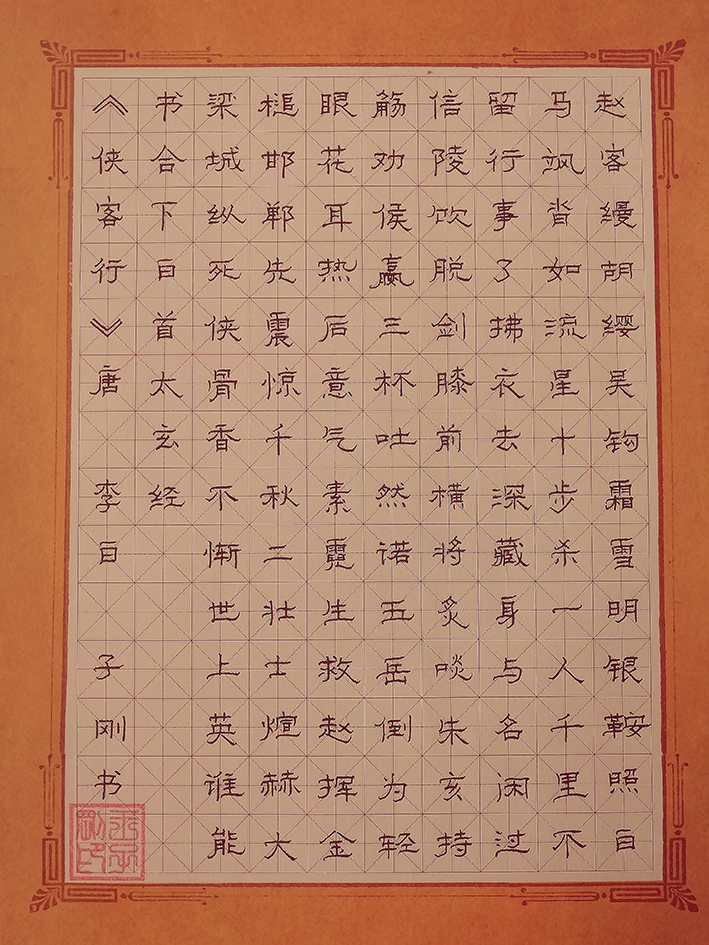 赵客缦胡缨吴钩霜雪明银鞍照白
马飒沓如流星十步杀一人千里不
留行事了拂衣去深藏身与名闲过
信陵饮脱剑膝前横将炙啖朱亥持
觞劝侯嬴三杯吐然诺五岳倒为轻
眼花耳热后意气素霓生救赵挥金
槌邯郸先震惊千秋二壮士煊赫大
梁城纵死侠骨香不惭世上英谁能
书合下白首太玄经
《侠客行》唐 李白 子刚书